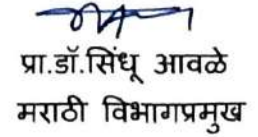 प्रा.डॉ.सिंधू आवळे
मराठी विभागप्रमुख